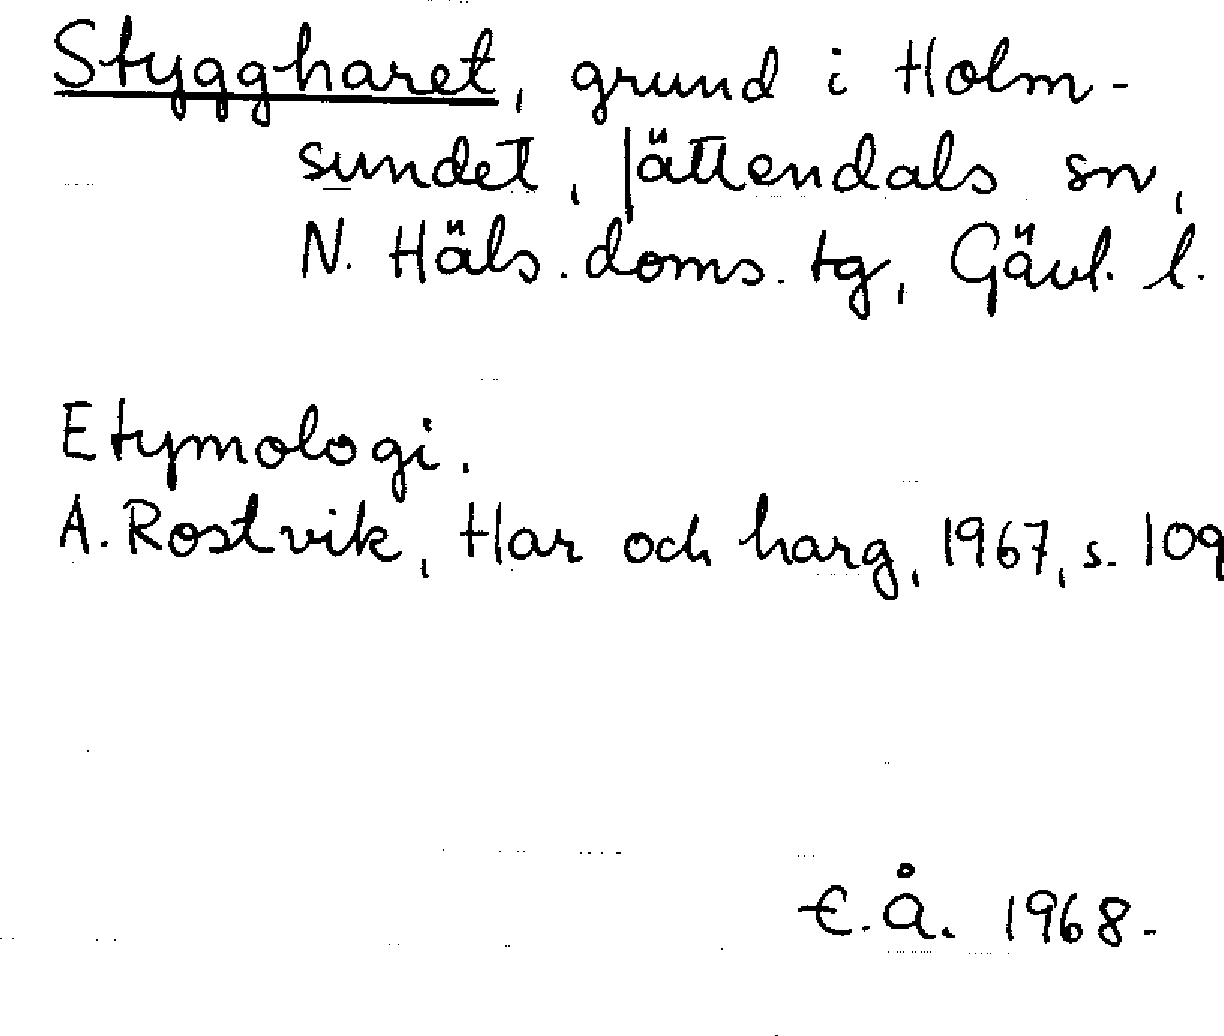 Styggharet, grund i Holm-
sundet, Jättendals sn,
N. Häls. doms. tg, Gävl. l.
Etymologi.
A. Rostvik, Har och harg, 1967, s. 109
E. Å. 1968.